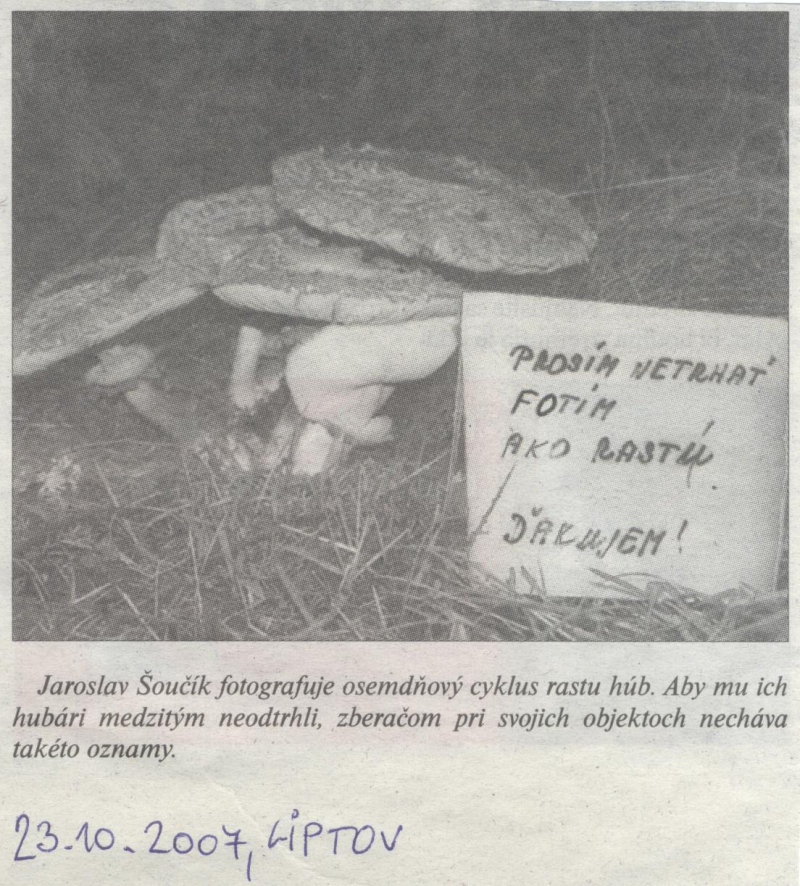 PROSÍM NETRHAŤ
FOTÍM
AKO RASTÚ
ĎAKUJEM!
Jaroslav Šoučík fotografuje osemdňový cyklus rastu húb. Aby mu ich
hubári medzitým neodtrhli, zberačom pri svojich objektoch necháva
takéto oznamy.
23.10.2007, LIPTOV